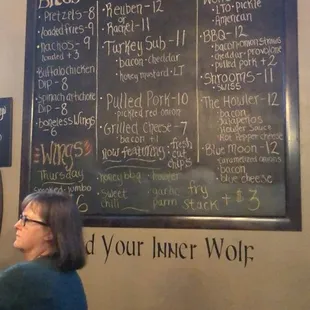 Pretzels - 8
loaded fries - 9
nachos - 9
loaded + 3
Buffalo chicken
Dip - 8
spinach artichoke
Dip - 8
Boneless Wings
- 6
Wings
Thursday
Smoked Jumbo
Reuben - 12
or
Rachel - 11
Turkey Sub - 11
bacon - cheddar
honey mustard - LT
Pulled Pork - 10
pickled red onion
Grilled Cheese - 7
bacon +1
Now featuring - fresh
cut
chips
honey bbq
sweet
chili
garlic
parm
try
stack + $3
LTO - pickle
American
BBQ - 12
bacon - onion straws
cheddar - provolone
pulled pork + 2
Shrooms - 11
Swiss
The Howler - 12
bacon
Jalapeños
Howler Sauce
Hot Pepper cheese
Blue Moon - 12
caramelized onions
bacon
blue cheese
d Your Inner Wolf